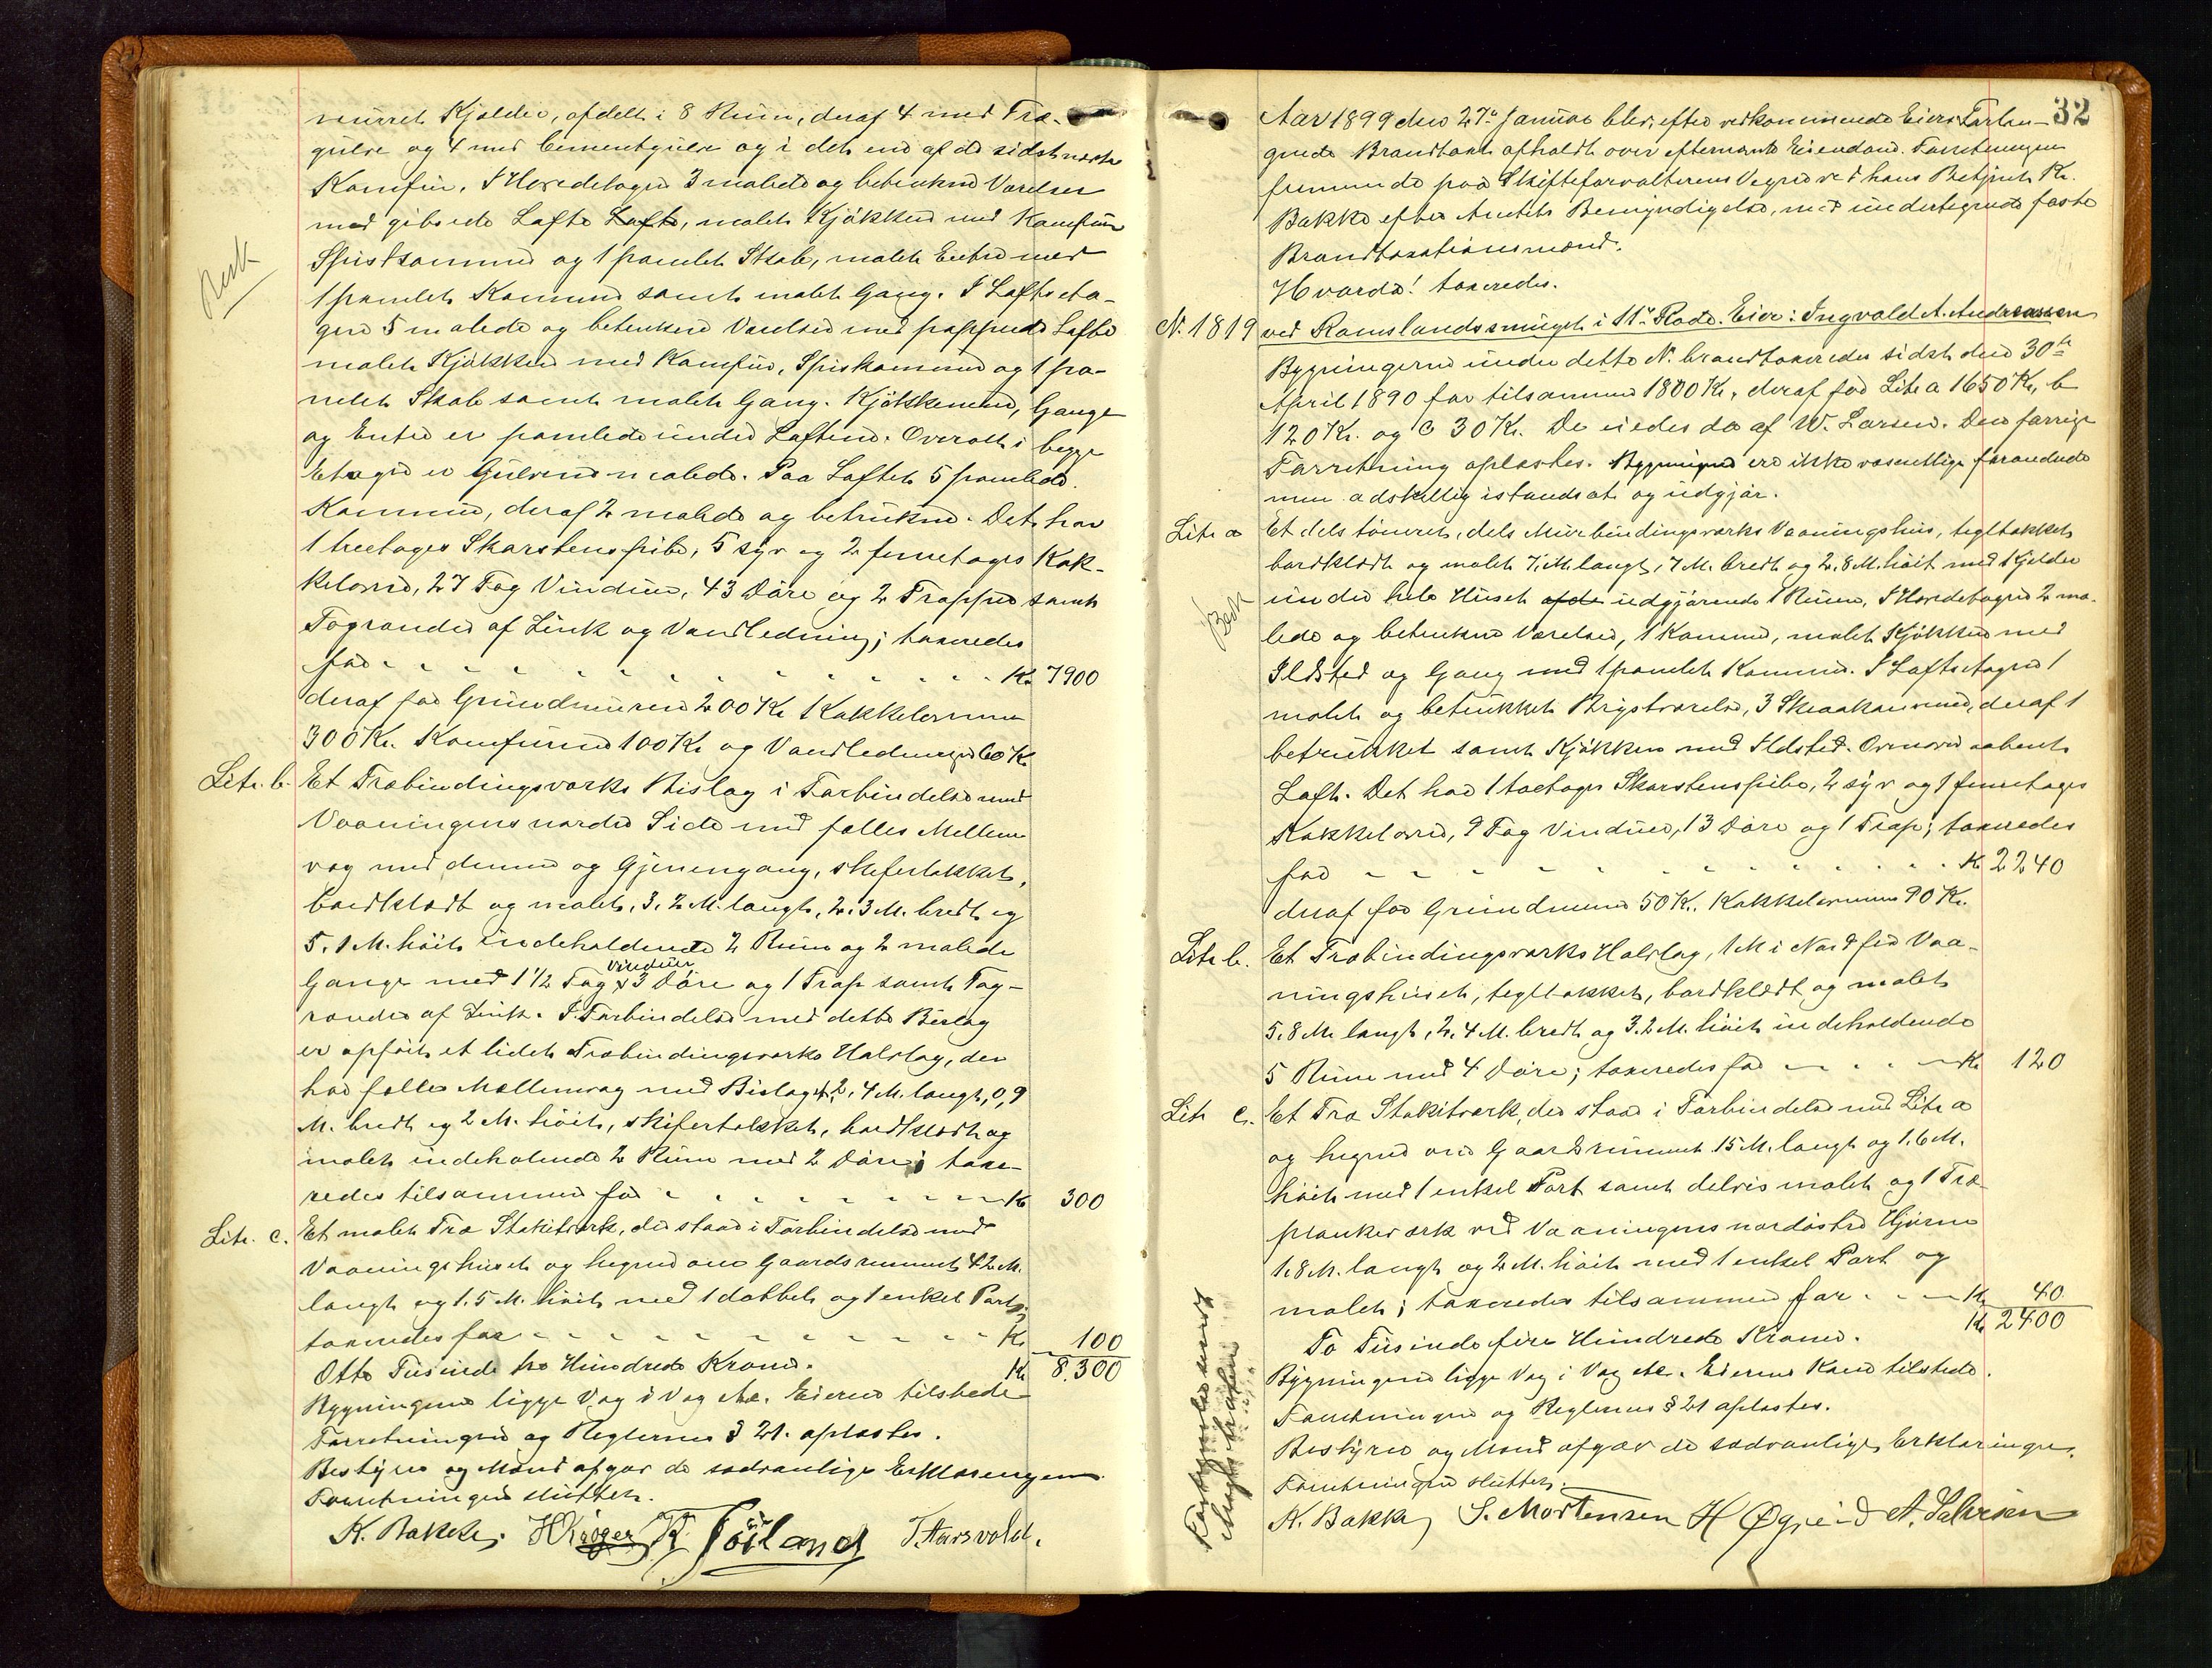 murret Kjelder, afdelt i 8 Rum, deraf 4 med Træ-
gulve og 4 med Cementgulve og i det ene af de sidstnævnte
Komfur. I Hovedetagen 3 malede og betrukne Værelser
med gibsede Lofte Lofte, malet Kjøkken med Komfur
Spiskammer og 1 panelet Skab, malet Entre med
1 panelet Kammer samt malet Gang. I Loftseta-
gen 5 malede og betrukne Værelser med pappede Lofte
malet Kjøkken med Komfur, Spiskammer og 1 pa-
nelet Skab samt malet Gang. Kjøkkenerne, Gange
og Entre er panelede under Loftene. Overalt i begge
Etager er Gulvene malede. Paa Loftet 5 panelede
Kammere, deraf 2 malede og betrukne. Det har
1 treetages Skorstenspibe, 5 syv og 2 femetages Kak-
kelovne, 27 Fag Vinduer, 43 Døre og 2 Trapper samt
Tagrender af Zink og Vandledning; taxeredes
for - - - - - - - - - - - - Kr. 7900
deraf for Grundmuren 200 Kr. Kakkelovnene
300 Kr. Komfurene 100 Kr og Vandledningen 60 Kr.
Besk
Litr. b. Et Træbindingsværks Bislag i Forbindelse med
Vaaningens nordre Side med fælles Mellem
væg med denne og Gjennemgang, skifertækket,
bordklædt og malet, 3.2 M. langt, 2.3 M. bredt og
5.1 M. høit indeholdende 2 Rum og 2 malede
Gange med 1 1/2 Fag Vinduer 3 Døre og 1 Trap samt Tag-
render af Zink. I Forbindelse med dette Bislag
er opført et lidet Træbindingsværks Halvtag, der
har fælles Mellemvæg med Bislaget, 2.4 M. langt, 0,9
M. bredt og 2 M. høit, skifertækket, bordklædt og
malet indeholdende 2 Rum med 2 Døre; taxe-
redes tilsammen for - - - - - - - - Kr 300
Litr. c. Et malet Træ Stakitværk, der staar i Forbindelse med
Vaaningshuset og hegner om Gaardsrummet 42 M.
langt og 1.5 M. høit med 1 dobbelt og 1 enkel Port;
taxeredes for - - - - - - - - - - - - Kr 100
Otte Tusinde tre Hundrede Kroner. Kr 8.300
Bygningerne ligge Væg i Væg etc. Eieren tilstede
Forretningen og Reglernes § 21. oplæstes.
Bestyrer og Mænd afgav de sædvanlige Erklæringer.
Forretningen sluttet.
K. Bakke, H Krøger K. Töiland T. Aarsvold.
32
Aar 1899 den 27de Januar blev, efter vedkommende Eiers Forlan-
gende Brandtaxt afholdt over efternævnte Eiendom. Forretningen
fremmedes paa Skifteforvalterens Vegne ved hans Betjent K.
Bakke efter Amtets Bemyndigelse, med undertegnede faste
Brandtaxationsmænd.
Hvorda! taxeredes.
N. 1819 ved Ramslandssmuget i 11te Rode. Eier: Ingvald A. Andreassen
Bygningerne under dette N. brandtaxeredes sidst den 30te
April 1890 for tilsammen 1800 Kr, deraf for Litr a 1650 Kr, b
120 Kr. og C 30 Kr. De eiedes da af W. Larsen. Den forrige
Forretning oplæstes. Bygningerne ere ikke væsentlige forandrede
men adskillig istandsat og udgjør.
Litr a Et dels tømret, dels Murbindingsværks Vaaningshus, tegltækket
bordklædt og malet 7.1 M. langt, 7 M. bredt og 2.8 M. høit med 1 Kjelder
under hele Huset afde udgjørende 1 Rum, I Hovedetagen 2 ma-
lede og betrukne Værelser, 1 Kammer, malet Kjøkken med
Ildsted og Gang med 1 panelet Kammer. I Loftsetagen 1
malet og betrukket Brystværelse, 3 Skraakammere, deraf 1
betrukket samt Kjøkken med Ildsted. Ovenover aabent
Loft. Det har 1 toetages Skorstenspibe, 2 syv og 1 femetages
Kakkelovne, 9 Fag Vinduer, 13 Døre og 1 Trap; taxeredes
for - - - - - - - - - - - - Kr 2240
deraf for Grundmuren 50 Kr. Kakkelovnene 90 Kr.
Besk
Litr b. Et Træbindingsværks Halvtag, 1 M i Nord for Vaa-
ningshuset, tegltækket, bordklædt og malet
5.8 M. langt, 2.4 M. bredt og 3.2 M. høit indeholdende
5 Rum med 4 Døre; taxeredes for - - - - Kr 120
Litr c. Et Træ Stakitværk, der staar i Forbindelse med Litr a
og hegner om Gaardsrummet 15 M. langt og 1.6 M.
høit med 1 enkel Port samt delvis malet og 1 Træ-
plankeværk ved Vaaningens nordøstre Hjørne
1.8 M. langt og 2 M. høit med 1 enkel Port og
malet; taxeredes tilsammen for - - - Kr 40
To Tusinde fire Hundrede Kroner. Kr 2400
Bygningerne ligge Væg i Væg etc. Eierens Kone tilstede.
Forretningen og Reglernes § 21 oplæstes.
Bestyrer og Mænd afgav de sædvanlige Erklæringer.
Forretningen sluttet.
K. Bakke, S. Mortensen H Øgreid A. Salvesen